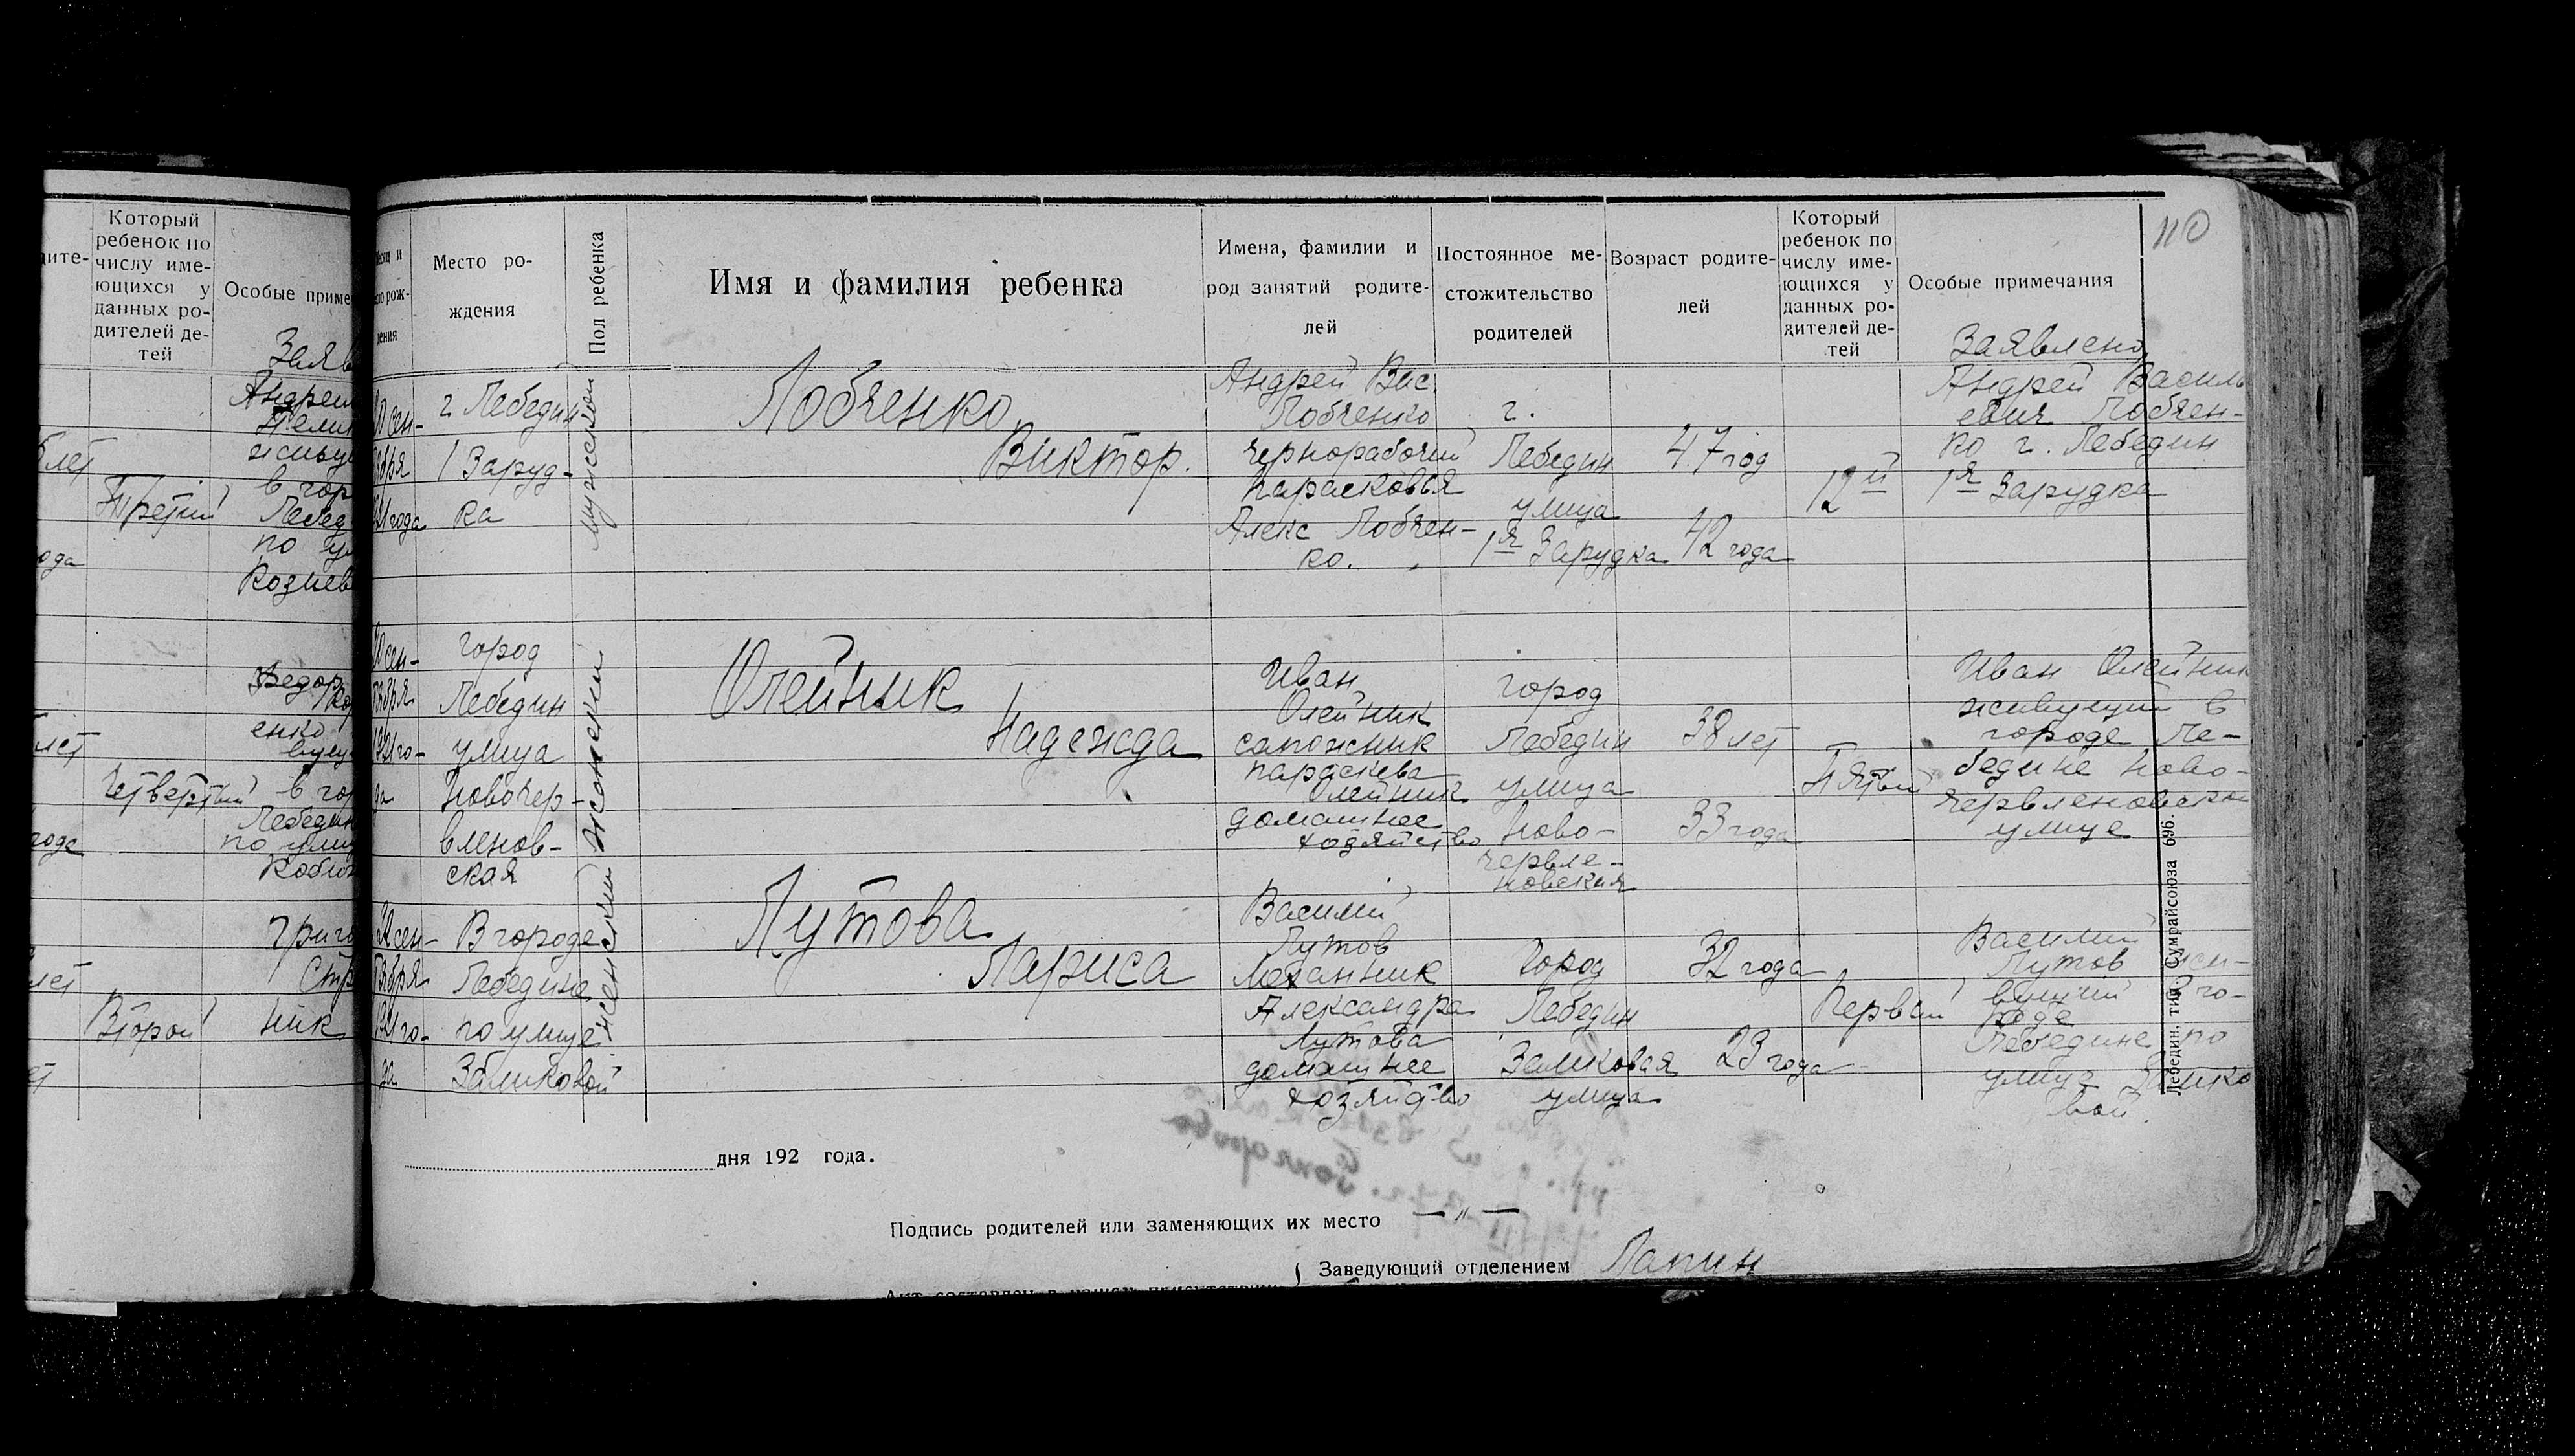 Который
ребенок по
числу име-
ющихся у
данных ро-
дителей де-
тей
Особые
Третий
в
по
Четвертый
в
по
Второй
ник
Место ро-
ждения
Пол ребенка
Имя и фамилия ребенка
Имена, фамилии и
род занятий родите-
лей
Постоянное ме-
стожительство
родителей
Возраст родите-
лей
Который
ребенок по
числу име-
ющихся у
данных ро-
дителей де-
тей
Особые примечания
110
сен-
г Лебедин
1 Заруд-
ка
мужской
Лобченко
Виктор.
Андрей Вас.
Лобченко
чернорабочий
парасковья
Алекс Лобчен-
ко.
г.
Лебедин
улица
1я Зарудка
47 год
42 года
12й
Заявлено
Андрей Василь
евич Лобчен-
ко г. Лебедин
1я Зарудка
сен-
тября
го-
да
город
Лебедин
улица
Новочер-
вленов-
ская
женский
Олейник
Надежда
Иван
Олейник
сапожник
параскева
Олейник
домашнее
хозяйство
город
Лебедин
улица
Ново-
червле-
новская
38 лет
33 года
Пятый
Иван Олейник
живущий в
городе Ле-
бедине Ново-
червленовской
улице
сен-
тября
го-
да
В городе
Лебедине
по улице
Замковой
женский
Лутова
Лариса
Василий
Лутов
Механник
Александра
Лутова
домашнее
хозяйство
город
Лебедин
Замковая
улица
32 года
23 года
Первый
Василий
Лутов жи-
вущий в го-
роде
Лебедине по
улице Замко
вой.
Лебедин., тип. Сумрайсоюза 696.
дня 192 года.
Подпись родителей или заменяющих их место — „ —
Заведующий отделением Лапин